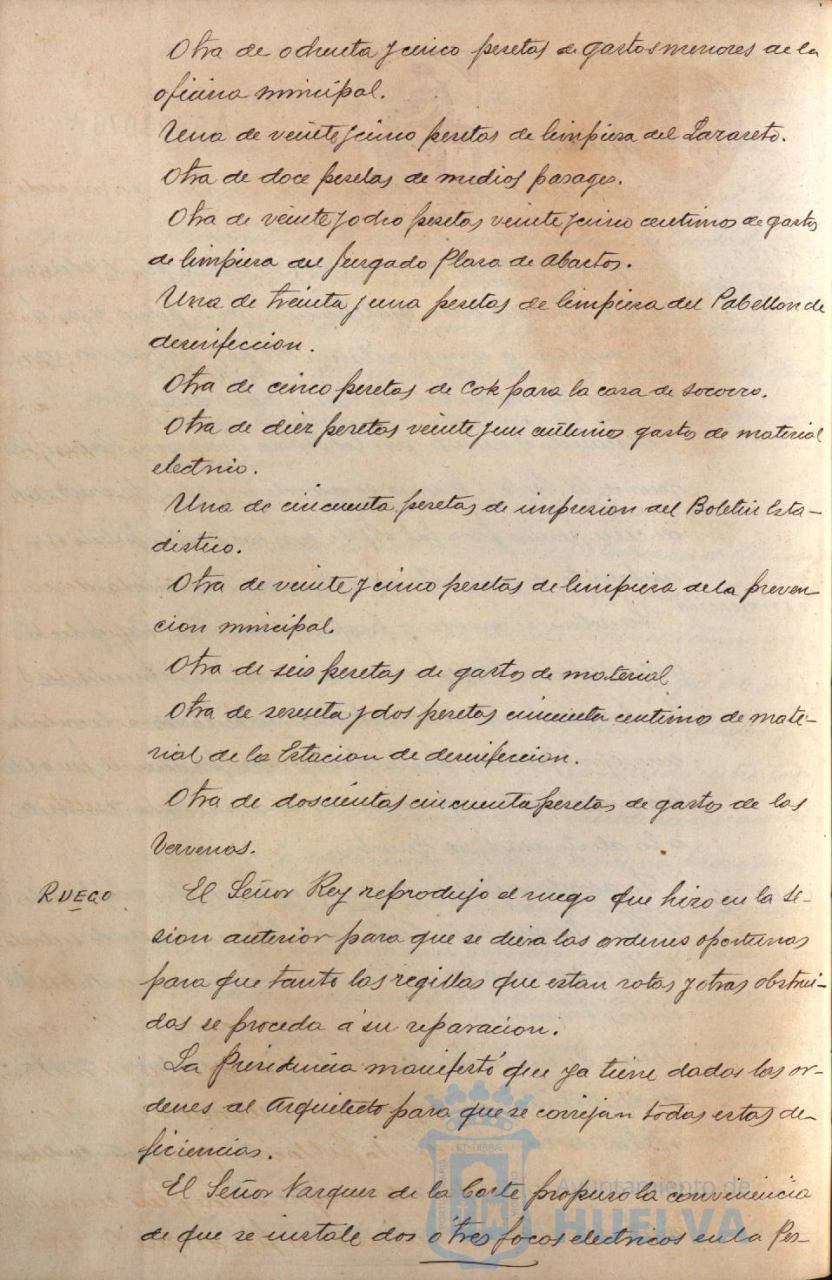 Otra de ochenta y cinco pesetas de gastos menores de la
oficina municipal.
Una de veinte y cinco pesetas de limpieza del Lazareto.
Otra de doce pesetas de medios pasages.
Otra de veinte y ocho pesetas veinte y cinco centimos de gastos
de limpieza del Juzgado Plaza de Abastos.
Una de treinta y una pesetas de limpieza del Pabellon de
desinfeccion.
Otra de cinco pesetas de Cok para la casa de socorro.
Otra de diez pesetas veinte y un centimos gastos de material
electrico.
Una de cincuenta pesetas de impresion del Boletin Esta-
distico.
Otra de veinte y cinco pesetas de limpieza de la preven
cion municipal
Otra de seis pesetas de gastos de material
Otra de sesenta y dos pesetas cincuenta centimos de mate-
rial de la Estacion de desinfeccion.
Otra de doscientas cincuenta pesetas de gastos de las
Vervenas.
RUEGO
El Señor Rey reprodujo el ruego que hizo en la se-
sion anterior para que se diera las ordenes oportunas
para que tanto las regillas que estan rotas y otras obstrui-
das se proceda á su reparacion.
La Presidencia manifestó que ya tiene dadas las or-
denes al Arquitecto para que se corrijan todas estas de-
ficiencias.
El Señor Vazquez de la Corte propuso la conveniencia
de que se instale dos ó tres focos electricos en la Pes-
Ayuntamiento de
HUELVA